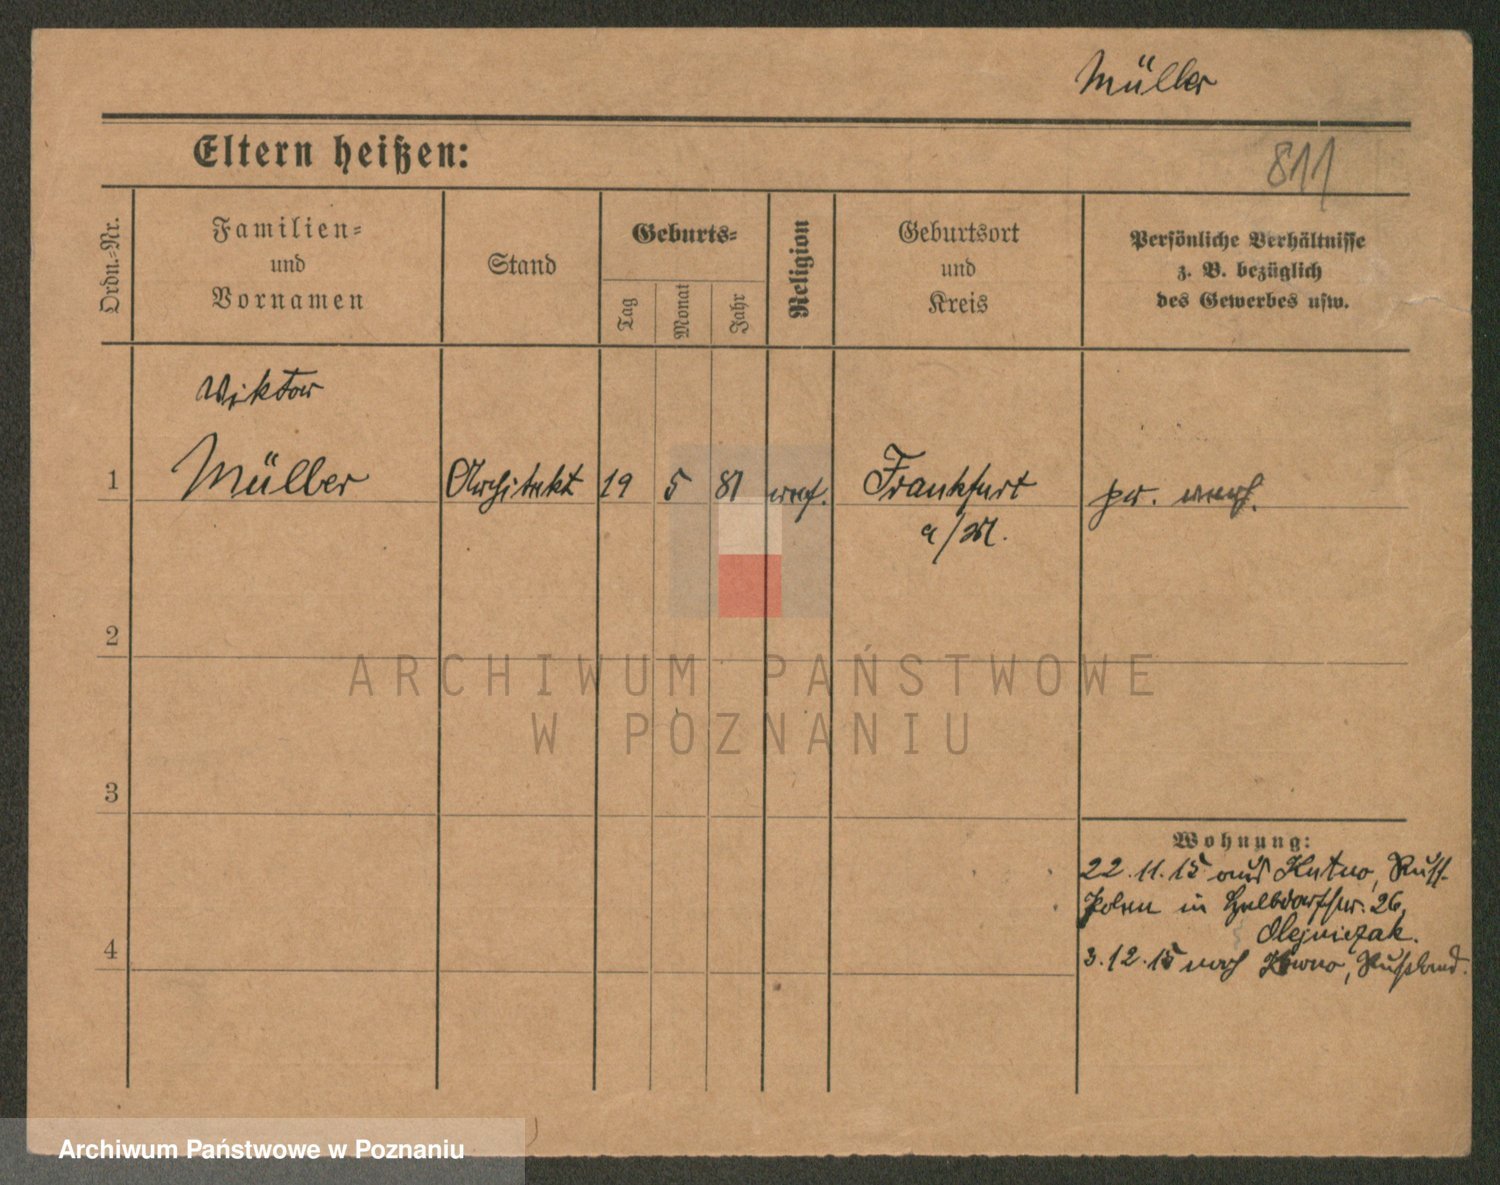 Müller
Eltern heißen:
811
Ordn.-Nr.
Familien-
und
Vornamen
Stand
Geburts-
Tag
Monat
Jahr
Religion
Geburtsort
und
Kreis
Persönliche Verhältnisse
z. B. bezüglich
des Gewerbes usw.
Viktor
1 Müller Architekt 19 5 81 Frankfurt pr.
a/M.
2
ARCHIWUM PAŃSTWOWE
W POZNANIU
3
Wohnung:
22.11.15 aus Kutno, Russ.
Polen in 26,
Olejniczak.
4
3.12.15 nach Kowno, Russland.
Archiwum Państwowe w Poznaniu